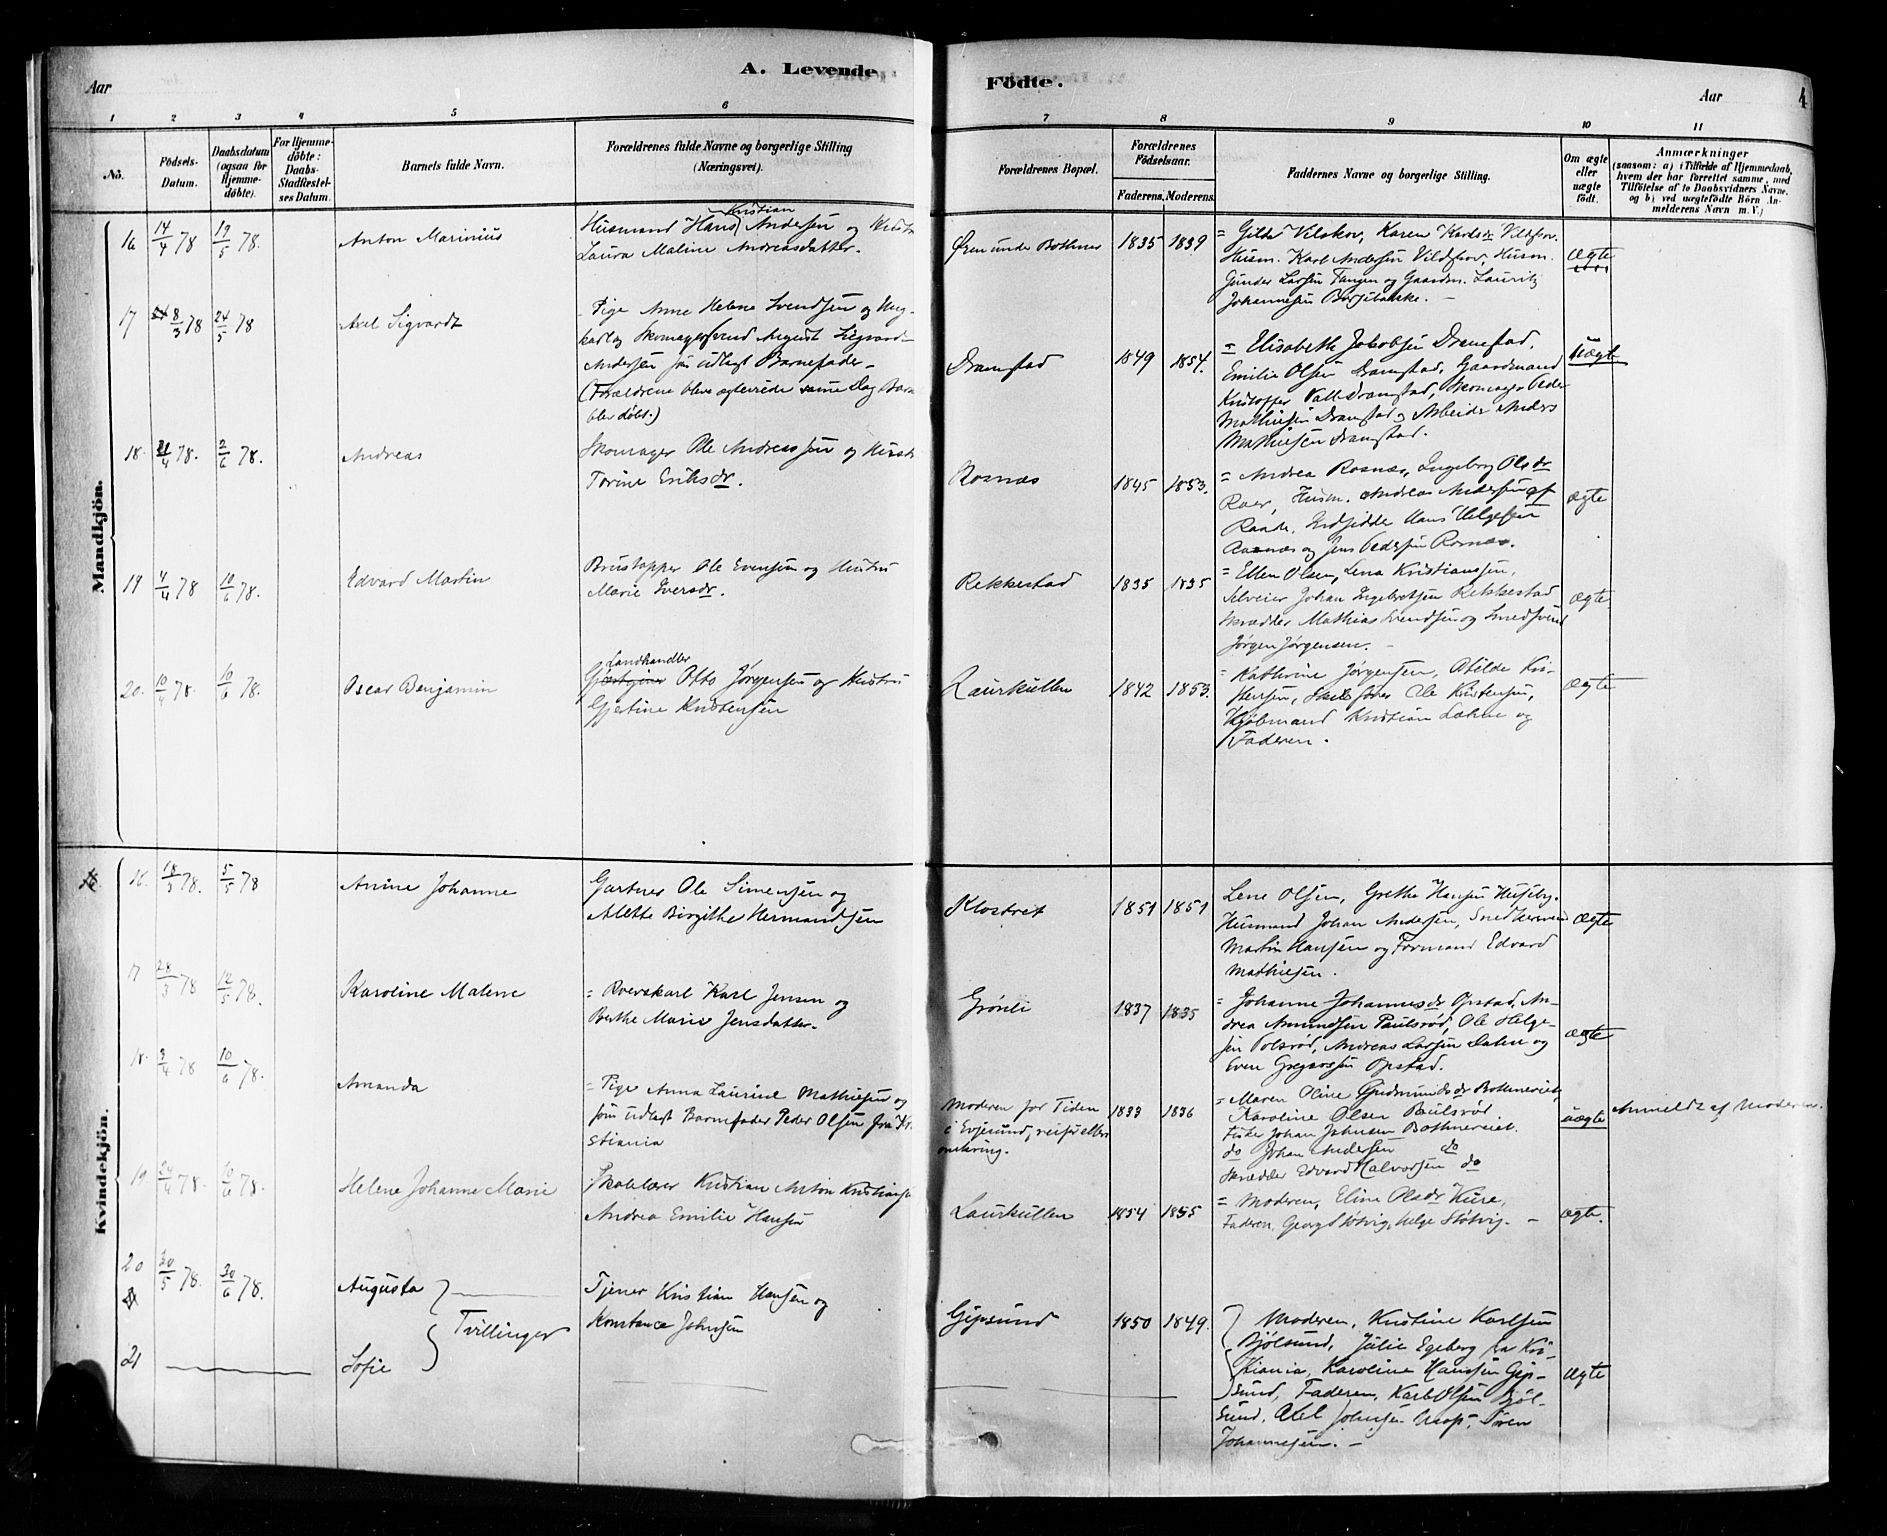 Aar
A. Levende
Födte.
Aar
4
1 2 3 4 5 6 7 8 9 10 11
No.
Födsels-Datum.
Daabsdatum (ogsaa för Hjemme-döbte).
For Hjemme-döbte: Daabs-Stadfæstel-ses Datum.
Barnets fulde Navn.
Forældrenes fulde Navne og borgerlige Stilling
(Næringsvei).
Forældrenes Bopæl.
Forældrenes Födselsaar.
Faderens. Moderens.
Faddernes Navne og borgerlige Stilling.
Om ægte eller uægte födt.
Anmærkninger
(saasom: a) i Tilfælde af Hjemmedaab,
hvem der har forrettet samme, med
Tilföielse af to Daabsvidners Navne,
og b) ved uægtefödte Börn An-
melderens Navn m. V.)
Mandkjön.
16 14/4 78 19/5 78. Anton Marinius
Kristian
Husmand Hans Andersen og Hustru
Laura Maline Andreasdatter.
1835 1839
Karen Karlsdr
Husm. Karl Andersen Husm.
Gunder Larsen Tangen og Gaardm. Lauritz
Johannesen
Ægte
17 8/3 78 24/5 78 Axel Sigvardt
Pige Anne Helene Svendsen og Ung-
karl og Skomagersvend August Sigvard
Andersen som udlagt Barnefader -
(Forældrene bleve ægteviede samme Dag Barn
blev döbt.)
Dramstad 1849 1854.
= Elisabeth Jakobsen Dramstad,
Emilie Olsen Dramstad, Gaardmand
Kristoffer Dramstad, Skomager Peder
Mathiesen Dramstad og Arbeider Anders
Mathiesen Dramstad.
Uægte
18. 21/4 78. 2/6 78. Andreas
Skomager Ole Andreassen og Hustru
Torine Eriksdr.
Rosnæs 1845 1853.
= Andrea Rosnæs, Ingeborg Olsdr
Roer, Husm. Andreas Andersen af
Raade, Indsidder Hans Helgesen
Rosnæs og Jens Pedersen Rosnæs.
Ægte
19 4/4 78 10/6 78. Edvard Martin
Ole Evensen og Hustru
Marie Iversdr.
Rekkestad 1835 1835
= Ellen Olsen, Lena Kristianssen,
Selveier Johan Ingebretsen Rekkestad
Skrædder Mathias Svendsen og Smedsvend
Jørgen Jørgensen.
Ægte
20. 10/4 78. 10/6 78. Oscar Benjamin
Landhandler
Otto Jørgensen og Hustru
Gjertine Kristensen
Laurkullen 1842 1853.
= Kathrine Jørgensen, Otilde Kri-
stensen, Ole Kristensen,
Kjøbmand Kristian og
Faderen.
Ægte
Kvindekjön.
16. 18/3 78. 5/5 78 Anine Johanne
Gartner Ole Simensen og
Alette Birgithe Hermandsen
Klostret 1851 1851
Lene Olsen, Grethe Hansen Huseby.
Husmand Johan Andersen,
Martin Hansen og Formand Edvard
Mathiesen.
Ægte
17 28/3 78 12/5 78. Karoline Malene
= Karl Jensen og
Berthe Marie Jensdatter.
Grönli 1837 1835
= Johanne Johannesdr Opstad, An-
drea Amundsen Paulsrød, Ole Helge-
sen Andreas Larsen Dalen og
Even Gregersen Opstad.
Ægte
18. 3/4 78 10/6 78. Amanda
= Pige Anna Laurine Mathiesen og
som udlagt Barnefader Peder Olsen fra Kri-
stiania
Moderen for Tiden
i Evjesund,
omkring.
1833 1836
= Maren Oline Gudmundsdr Bothnereiet,
Karoline Olsen Paulsrød.
Fisker Johan Johnsen Bothnereiet.
do Johan Andersen do
Skrædder Edvard Halvorsen do
uægte
Anmeldt af Moderen.
19 24/4 78. 10/6 78. Helene Johanne Marie
Skolelærer Kristian Anton Kristiansen
Andrea Emilie Hansen
Laurkullen 1854 1855
= Moderen, Eline Olsdr Kure,
Faderen, Georg Støtvig, Helge Støtvig. -
Ægte.
20 30/5 78. 30/6 78. Augusta
Tvillinger
Tjener Kristian Hansen og
Konstance Johnsen
Gipsund 1850 1849.
21 Sofie
Moderen, Kristine Karlsen
Bjölsund, Julie Egeberg fra Kri-
stiania, Karoline Hansen Gip-
sund, Faderen, Karl Olsen Bjöl-
sund, Axel Johnsen Mos, Sören
Johannesen. -
Ægte